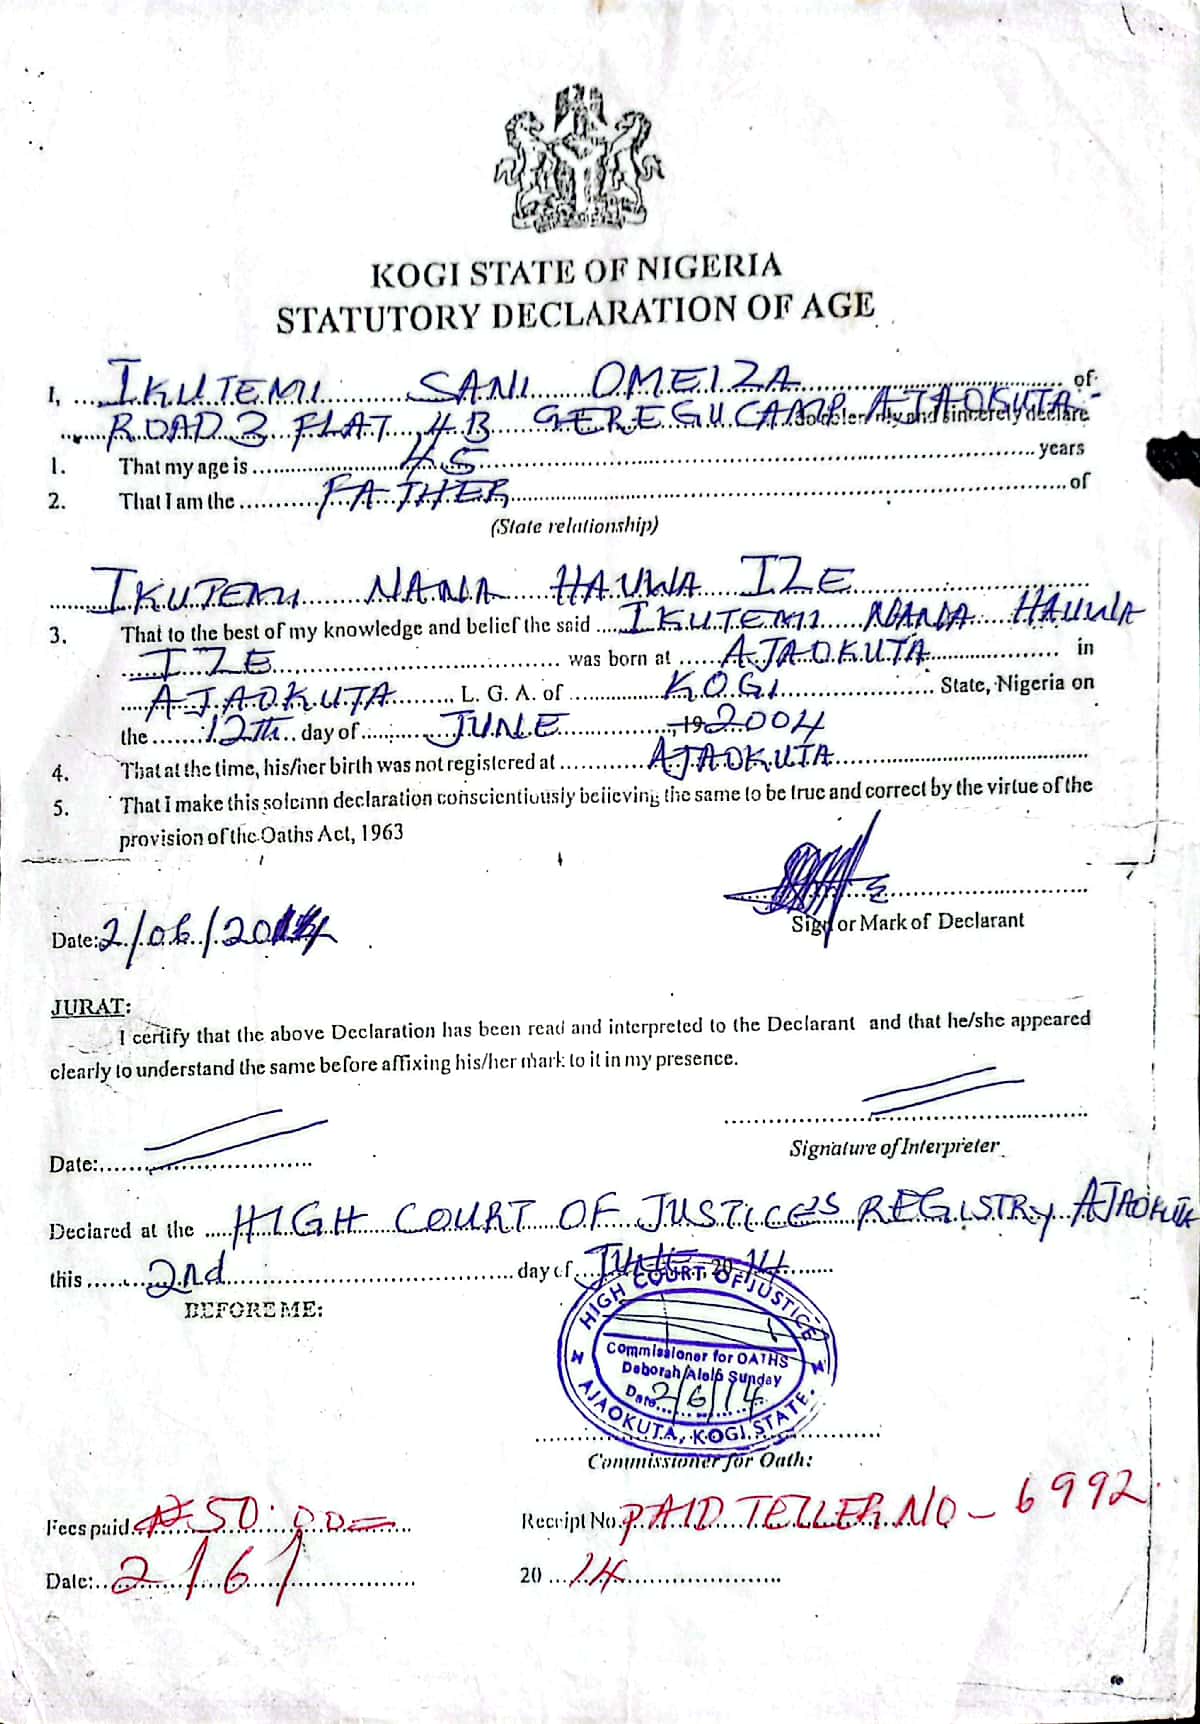 KOGI STATE OF NIGERIA
STATUTORY DECLARATION OF AGE
I, IKUTEMI SANI OMEIZA of
ROAD 3 FLAT 4B GEREGU CAMP AJAOKUTA do solemnly and sincerely declare
1. That my age is 45 years
2. That I am the FATHER of
(State relationship)
IKUTEMI NANA HAUWA IZE
3. That to the best of my knowledge and belief the said IKUTEMI NANA HAUWA
IZE was born at AJAOKUTA in
AJAOKUTA L. G. A. of KOGI State, Nigeria on
the 12th day of JUNE, 19 2004
4. That at the time, his/her birth was not registered at AJAOKUTA
5. That I make this solemn declaration conscientiously believing the same to be true and correct by the virtue of the
provision of the Oaths Act, 1963
Date: 2/06/2014
Sign or Mark of Declarant
JURAT:
I certify that the above Declaration has been read and interpreted to the Declarant and that he/she appeared
clearly to understand the same before affixing his/her mark to it in my presence.
Date:
Signature of Interpreter
Declared at the HIGH COURT OF JUSTICES REGISTRY AJAOKUTA
this 2nd day of JUNE 2014
BEFORE ME:
HIGH COURT OF JUSTICE
Commissioner for OATHS
Deborah Sunday
Date 2/6/14
AJAOKUTA, KOGI STATE.
Commissioner for Oath:
Fees paid ₦50:00= Receipt No. PAID TELLER NO - 6992
Date: 2/6/ 20 14